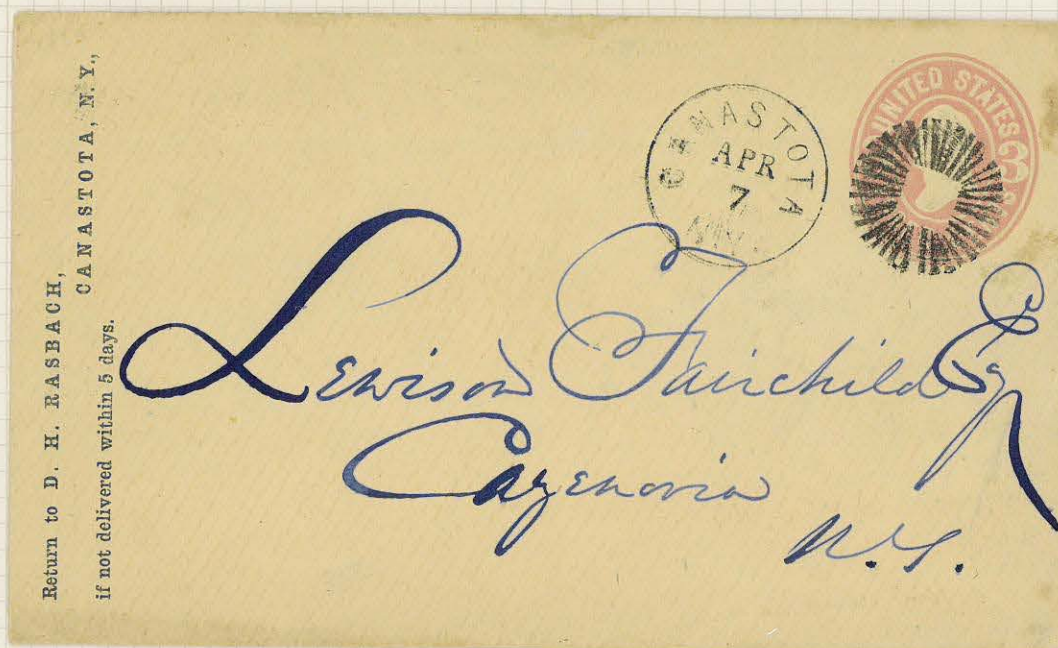 Return to D. H. RASBACH,
CANASTOTA, N. Y.,
if not delivered within 5 days.
CANASTOTA
APR
7
N.Y.
UNITED STATES
3
Lewison Fairchild Esq
Cazenovia
N.Y.